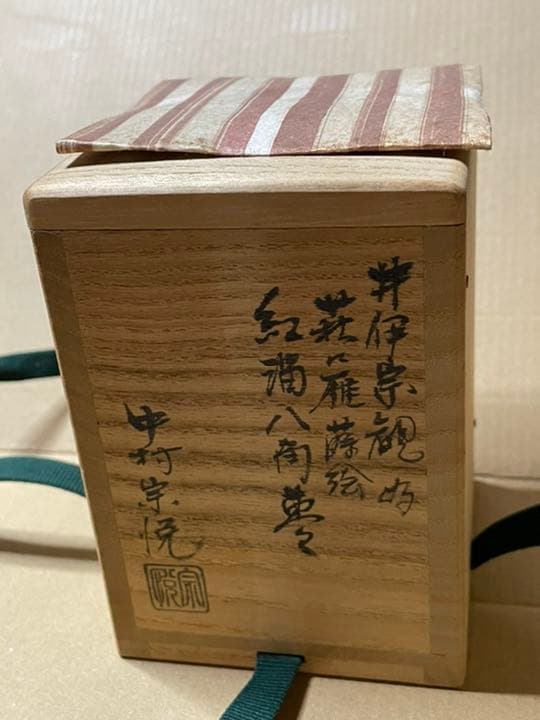 井伊宗観好
萩ニ雁蒔絵
紅溜八角棗
中村宗悦
宗悦